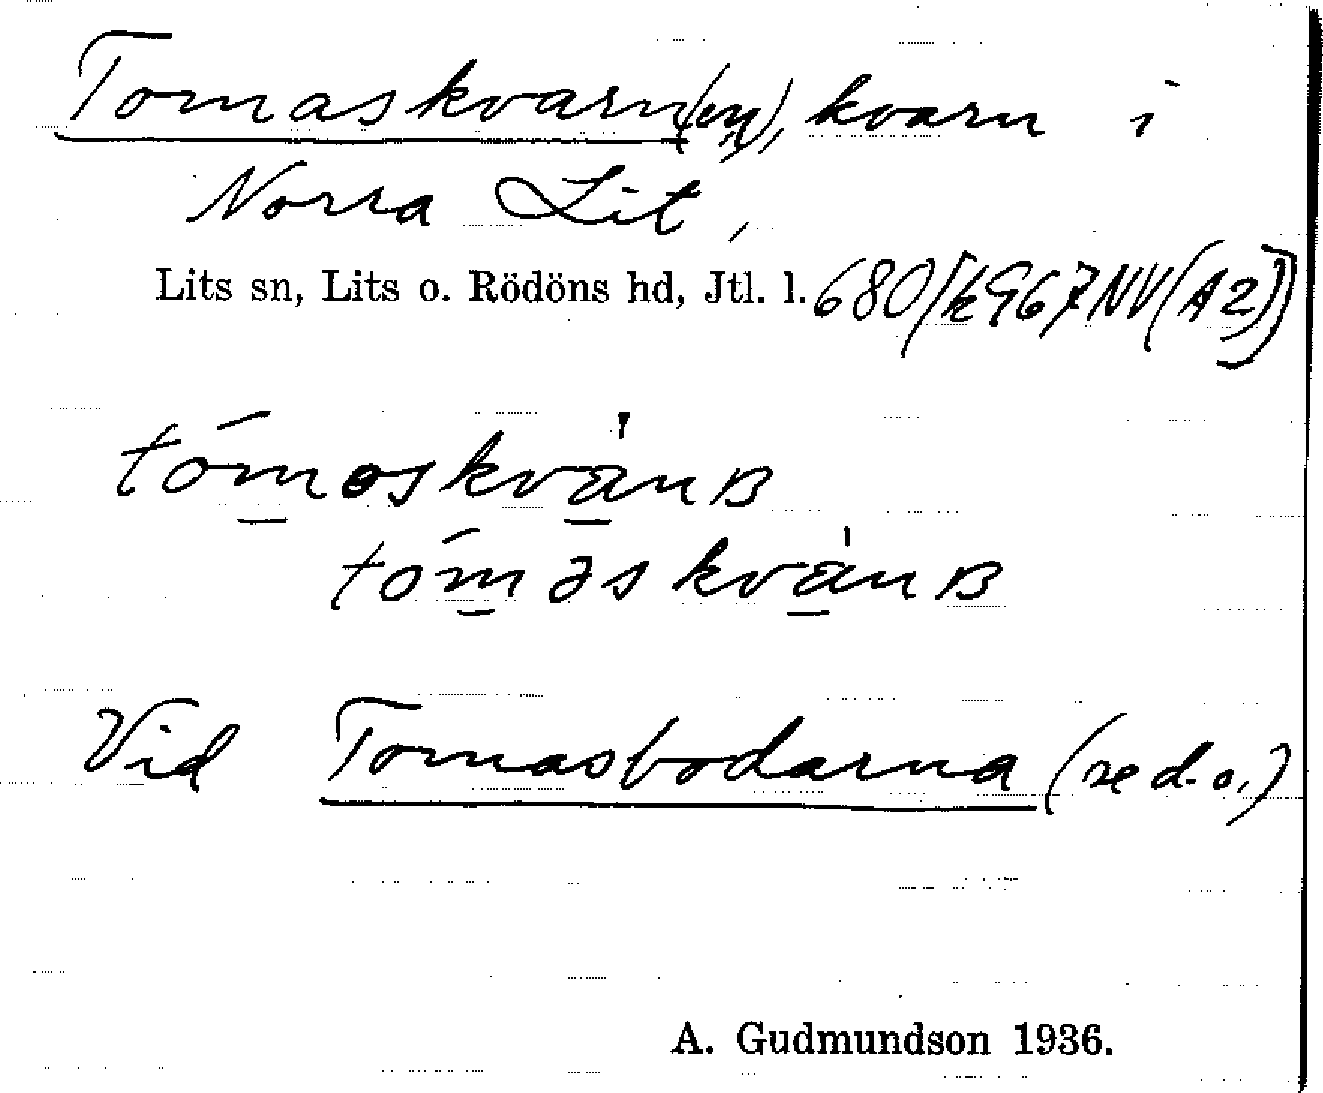 Tomaskvarn(en), kvarn i
Norra Lit,
Lits sn, Lits o. Rödöns hd, Jtl. l. 680/k967NV(A2))
tómoskvä̀nʙ
tóməskvä̀nʙ
Vid Tomasbodarna (se d. o.)
A. Gudmundson 1936.